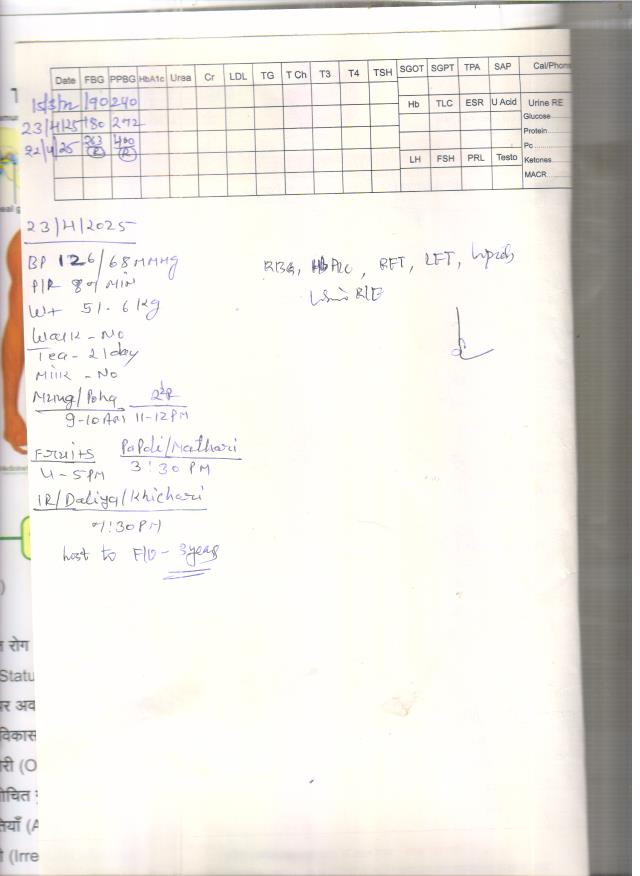 Date FBG PPBG HbA1c Urea Cr LDL TG T Ch T3 T4 TSH SGOT SGPT TPA SAP Cal/Phone
190 240
Hb TLC ESR U Acid Urine RE
23/4/25 180 272
Glucose
Protein
22/4/25 263 400
Pc
R R
LH FSH PRL Testo Ketones
MACR
23/4/2025
BP 126/68 MMHg
RBG, HbA1c, RFT, LFT, Lipids
P/R 89 MIN
Urine R/E
Wt 51.6 kg
Walk - No
Tea - 2/day
Milk - No
Mung/Poha
9-10 AM 11-12 PM
Fruits Papdi/Mathari
4-5 PM 3:30 PM
1R/Daliya/Khichari
7:30 PM
lost to F/U - 3 years
त रोग
Statu
पर अव
विकास
री (O
ोचित
तियाँ (A
ी (Irre